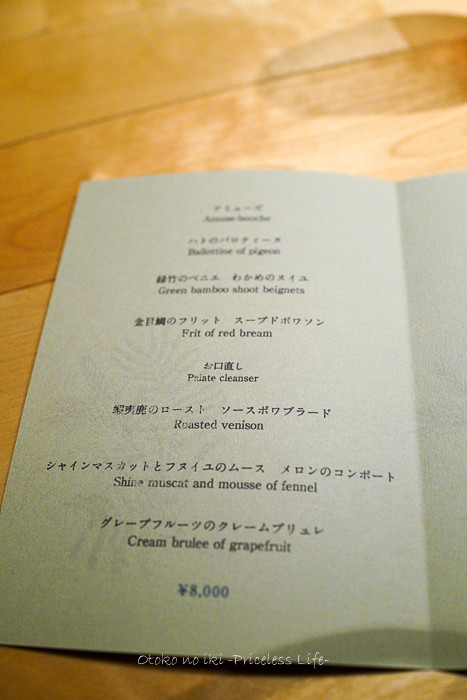 アミューズ
Amuse-bouche
ハトのバロティーヌ
Ballottine of pigeon
緑竹のベニエ わかめのヌイユ
Green bamboo shoot beignets
金目鯛のフリット スープドポワソン
Frit of red bream
お口直し
Palate cleanser
蝦夷鹿のロースト ソースポワブラード
Roasted venison
シャインマスカットとフヌイユのムース メロンのコンポート
Shine muscat and mousse of fennel
グレープフルーツのクレームブリュレ
Cream brulee of grapefruit
¥8,000
Otoko no iki -Priceless Life-